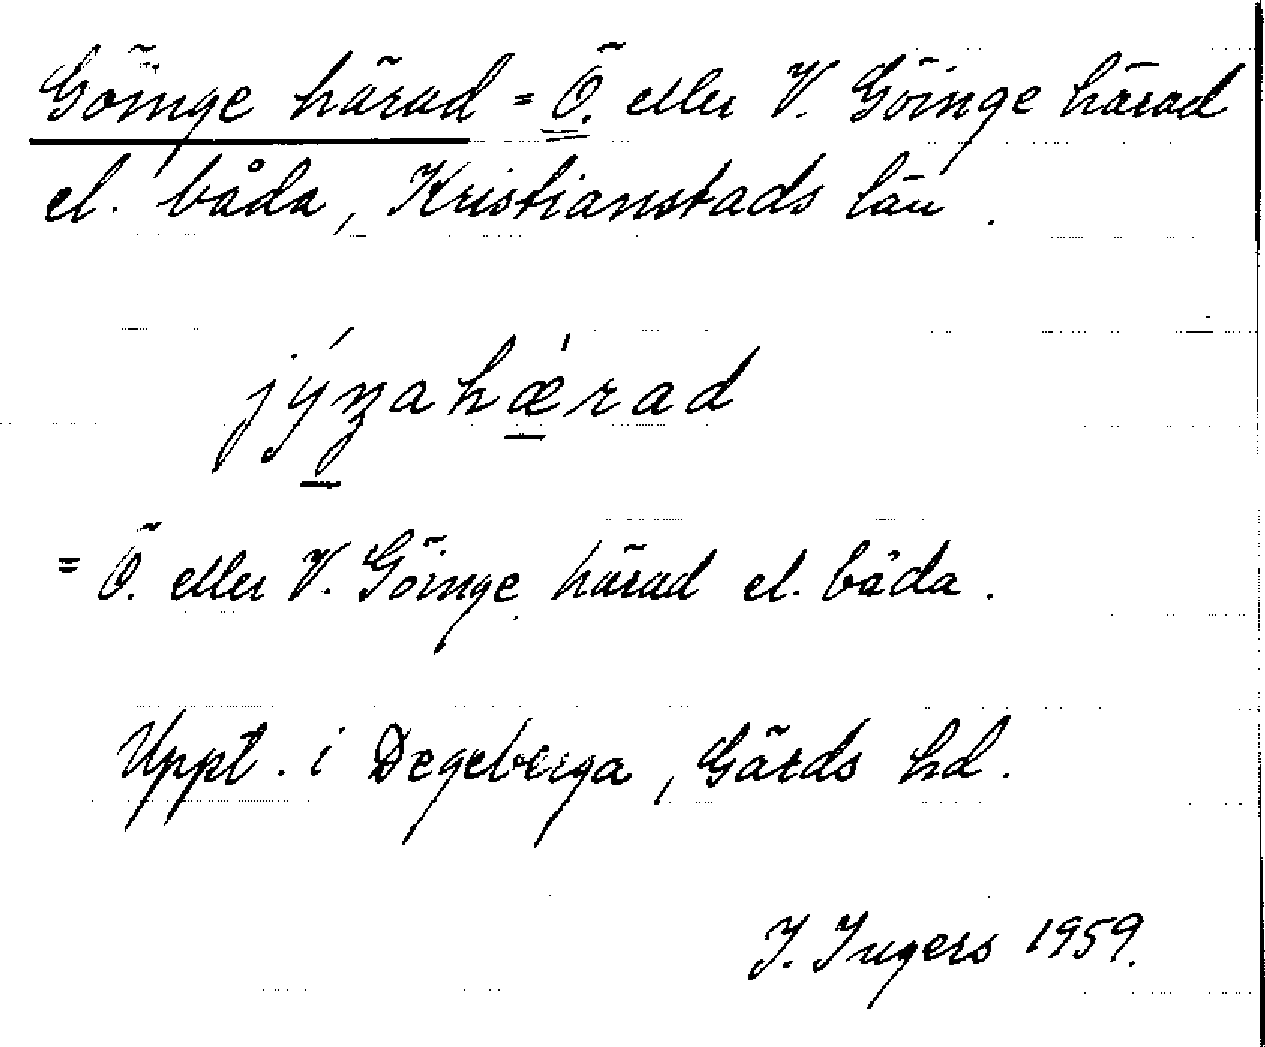 Göinge härad = Ö. eller V. Göinge härad
el. båda, Kristianstads län.
jýŋahǽrad
= Ö. eller V. Göinge härad el. båda.
Uppt. i Degeberga, Gärds hd.
I. Ingers 1959.